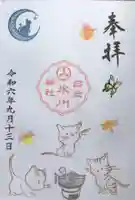 奉拝
氷川
神社
令和六年九月十三日